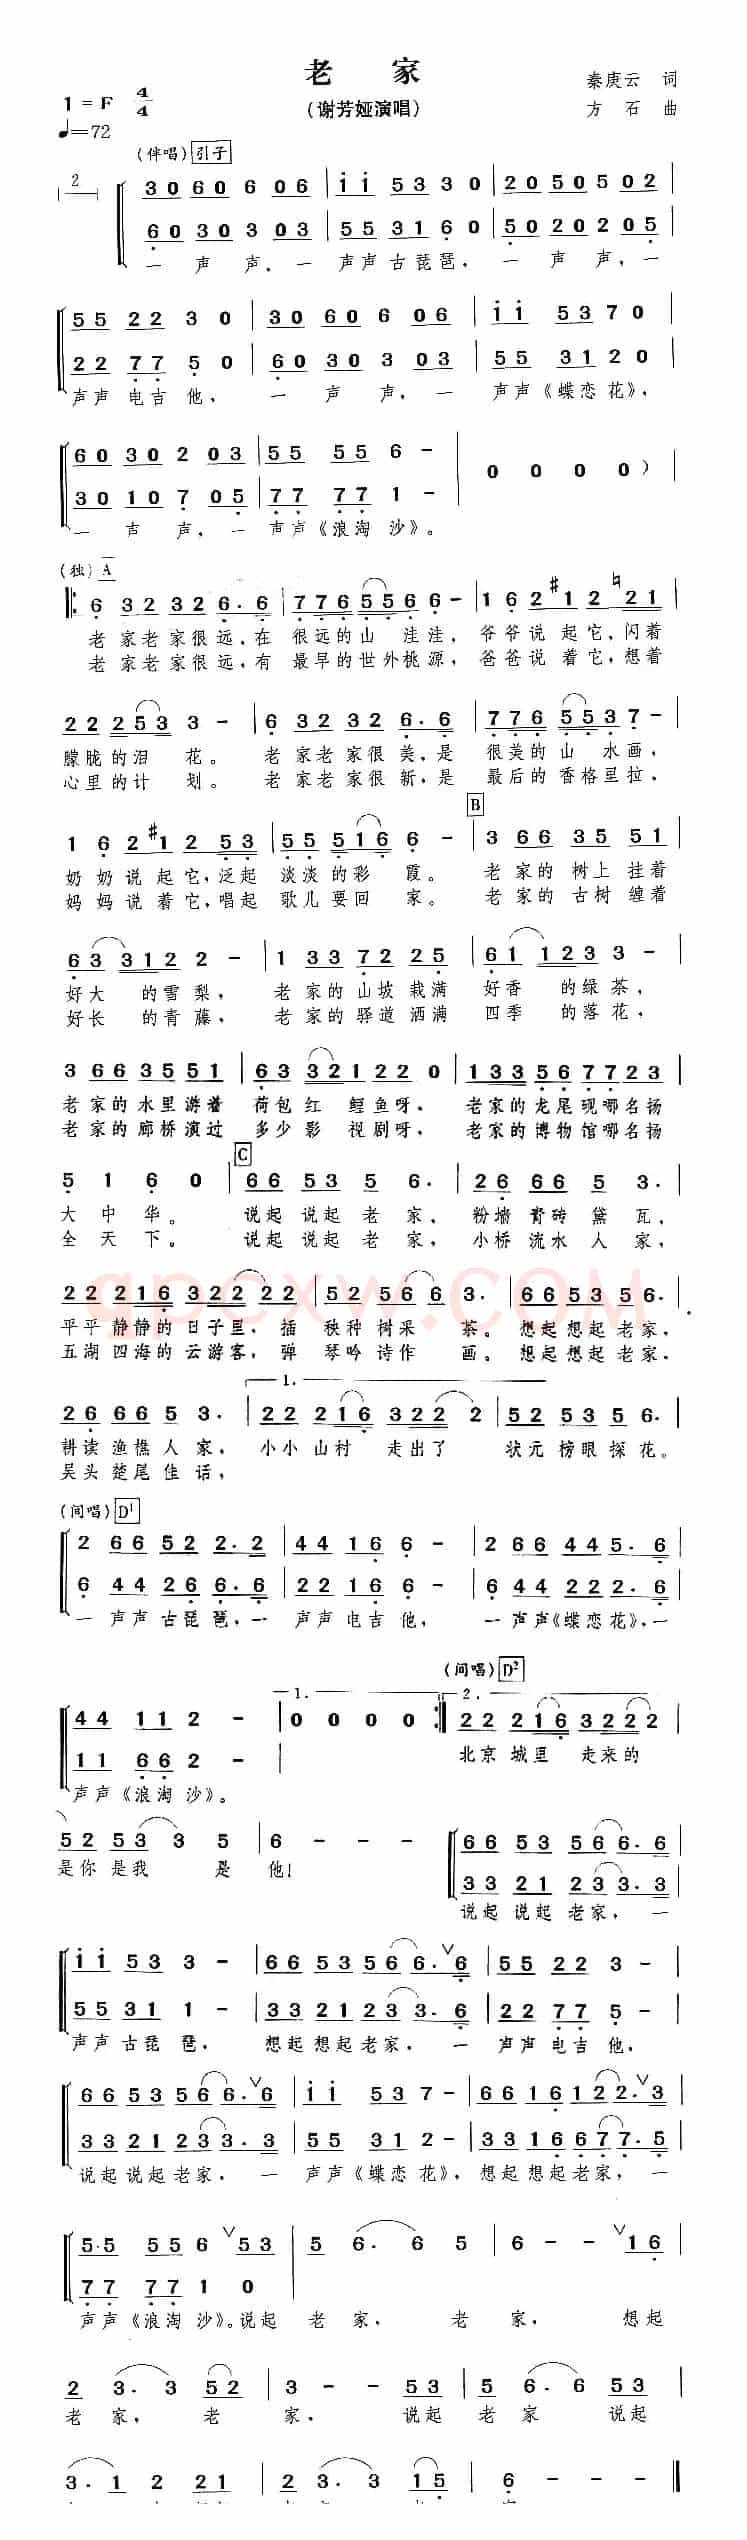 老 家
秦庚云 词
1 = F 4/4
（谢芳娅演唱）
方 石 曲
♩=72
（伴唱）引子
2
3 0 6 0 6 0 6 | i i 5 3 3 0 | 2 0 5 0 5 0 2 |
6 0 3 0 3 0 3 | 5 5 3 1 6 0 | 5 0 2 0 2 0 5 |
一 声 声，一 声声古琵琶，一 声 声，一
5 5 2 2 3 0 | 3 0 6 0 6 0 6 | i i 5 3 7 0
2 2 7 7 5 0 | 6 0 3 0 3 0 3 | 5 5 3 1 2 0
声声 电吉 他，一 声 声，一 声声《蝶恋 花》，
6 0 3 0 2 0 3 | 5 5 5 5 6 - | 0 0 0 0） |
3 0 1 0 7 0 5 | 7 7 7 7 1 - |
一 声 声，一 声声《浪淘 沙》。
（独）A
6 3 2 3 2 6. 6 | 7 7 6 5 5 6 6 - | 1 6 2 #1 2 ♮2 1 |
老 家老 家很 远，在 很 远的 山 洼洼，爷爷说 起它，闪着
老 家老 家很 远，有 最早的世外桃源，爸爸说 着它，想着
2 2 2 5 3 3 - | 6 3 2 3 2 6. 6 | 7 7 6 5 5 3 7 - |
朦胧的泪 花。 老 家老家很 美，是 很 美的 山 水画，
心里的计 划。 老 家老家很 新，是 最后的 香格里拉，
B
1 6 2 #1 2 5 3 | 5 5 5 1 6 6 - | 3 6 6 3 5 5 1 |
奶奶说起它，泛起 淡淡的彩 霞。 老 家的 树上 挂着
妈妈说着它，唱起 歌儿要回 家。 老 家的 古树 缠着
6 3 3 1 2 2 - | 1 3 3 7 2 2 5 | 6 1 1 2 3 3 - |
好大 的雪 梨， 老 家的 山坡 栽满 好香 的绿 茶，
好长 的青 藤， 老 家的 驿道 洒满 四季 的落 花，
3 6 6 3 5 5 1 | 6 3 3 2 1 2 2 0 | 1 3 3 5 6 7 7 2 3
老 家的 水里 游着 荷包 红 鲤鱼呀， 老家的龙尾砚哪名扬
老 家的 廊桥 演过 多少 影 视剧呀， 老家的博物馆哪名扬
C
5 1 6 0 | 6 6 5 3 5 6. | 2 6 6 6 5 3. |
大 中 华。 说起 说起 老 家， 粉墙 青砖 黛 瓦，
全 天 下。 说起 说起 老 家， 小桥 流水 人 家，
2 2 2 1 6 3 2 2 2 2 | 5 2 5 6 6 3. | 6 6 5 3 5 6.
平平 静静的 日子里，插 秧种 树采 茶。 想起想起老家，
五湖 四海的 云游客，弹 琴吟 诗作 画。 想起想起老家，
1.
2 6 6 6 5 3. | 2 2 2 1 6 3 2 2 2 | 5 2 5 3 5 6. |
耕读 渔樵 人 家， 小小 山村 走出了 状元 榜眼 探 花。
吴头 楚尾 佳 话，
（间唱）D¹
2 6 6 5 2 2. 2 | 4 4 1 6 6 - | 2 6 6 4 4 5. 6 |
6 4 4 2 6 6. 6 | 2 2 1 6 6 - | 6 4 4 2 2 2. 6 |
一 声声 古琵 琶，一 声声 电吉 他， 一声声《蝶恋花》，一
（间唱）D²
1.
2.
4 4 1 1 2 - | 0 0 0 0 :| 2 2 2 1 6 3 2 2 2 |
1 1 6 6 2 - |
北京 城里 走来的
声声《浪淘 沙》。
5 2 5 3 3 5 | 6 - - - | 6 6 5 3 5 6 6. 6 |
3 3 2 1 2 3 3. 3 |
是你 是我 是 他！
说起 说起 老家，一
i i 5 3 3 - | 6 6 5 3 5 6 6. ∨6 | 5 5 2 2 3 - |
5 5 3 1 1 - | 3 3 2 1 2 3 3. 6 | 2 2 7 7 5 - |
声声 古琵 琶， 想起想起老家，一 声声 电吉 他，
6 6 5 3 5 6 6. ∨6 | i i 5 3 7 - | 6 6 1 6 1 2 2. ∨3 |
3 3 2 1 2 3 3. 3 | 5 5 3 1 2 - | 3 3 1 6 6 7 7. 5 |
说起说起老家，一 声声《蝶恋 花》，想起 想起老家，一
5. 5 5 5 6 ∨5 3 | 5 6. 6 5 | 6 - - ∨1 6 |
7 7 7 7 1 0
声声《浪淘 沙》。说起 老 家， 老 家， 想起
2 3. 3 5 2 | 3 - - 5 3 | 5 6. 6 5 3 |
老 家， 老 家， 说起 老 家 说起
3. 1 2 2 1 | 2 3. 3 1 5 | 6 - - - ‖